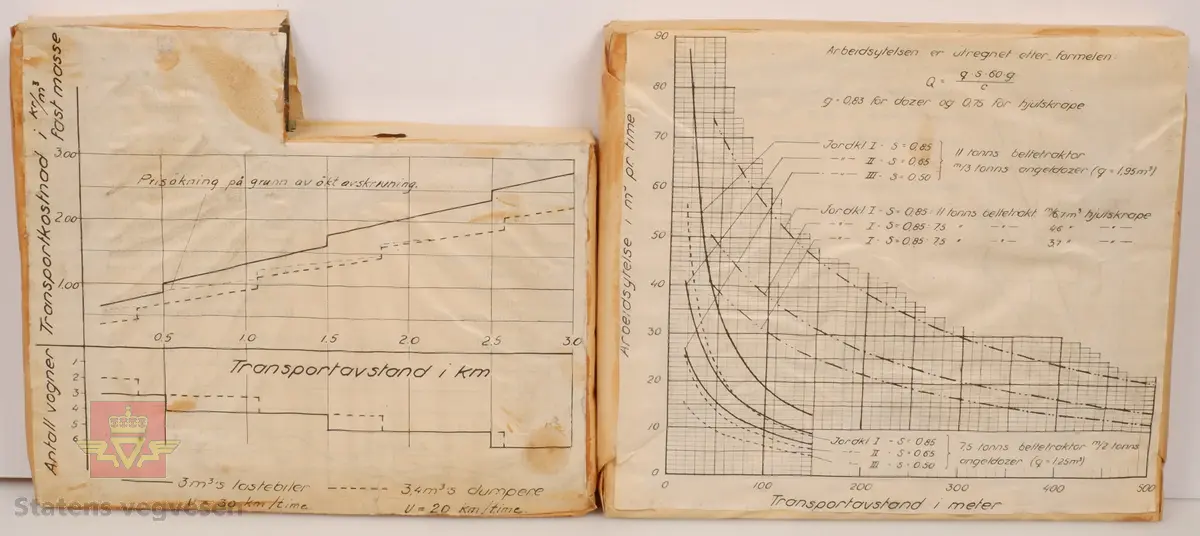 Transportkostnad i kr/m³
fast masse
3.00
2.00
1.00
Prisökning på grunn av ökt avskrivning.
0.5 1.0 1.5 2.0 2.5 3.0
Transportavstand i km
Antall vogner
1
2
3
4
5
6
3m³'s lastebiler
V = 30 km/time
3,4m³'s dumpere
V = 20 km/time
Statens vegvesen
Arbeidsytelse i m³ pr. time
90
80
70
60
50
40
30
20
10
0
Arbeidsytelsen er utregnet etter formelen:
Q = q·s·60·g / c
g = 0,83 for dozer og 0,75 for hjulskrape
Jordkl I - S = 0,85
–"– II - S = 0,65
–"– III - S = 0.50
11 tonns beltetraktor
m/3 tonns angeldozer (q = 1,95m³)
Jordkl I - S = 0,85 · 11 tonns beltetrakt. m/6,7m³ hjulskrape
–"– I - S = 0,85 · 7,5 " –"– 4,6 " –"–
–"– I - S = 0,85 · 7,5 " –"– 3,7 " –"–
Jordkl I - S = 0,85
–"– II - S = 0,65
–"– III - S = 0.50
7,5 tonns beltetraktor m/2 tonns
angeldozer (q = 1,25m³)
0 100 200 300 400 500
Transportavstand i meter